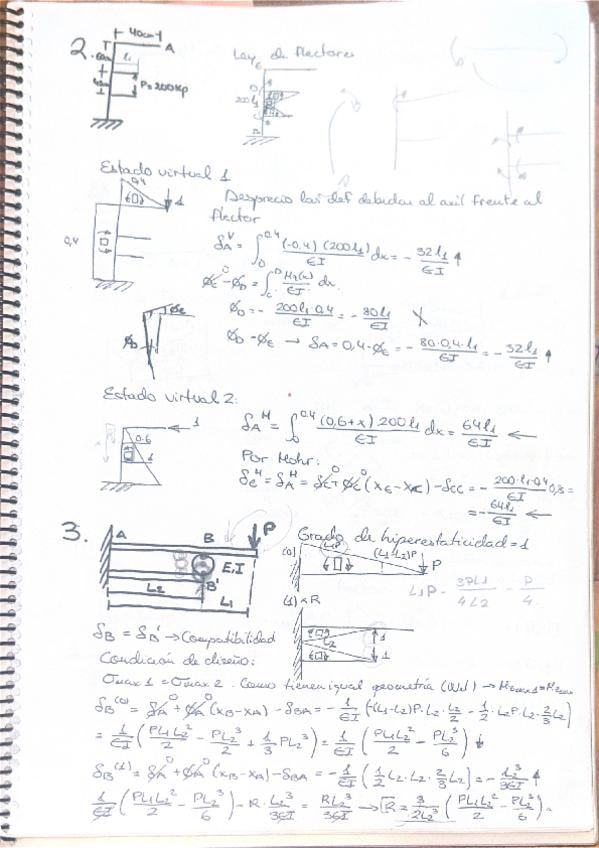 2.
40cm
A
60cm
l₁
40cm
P=200Kp
Ley de flectores
200l₁
Estado virtual 1
0,4
1
0,4
Desprecio las def debidas al axil frente al
flector
δ_A^V = ∫₀^0.4 (-0.4)(200l₁)/EI dx = - 32l₁/EI ↑
ϕ_C - ϕ_D = ∫ M_z(x)/EI dx.
ϕ_D = - 200l₁·0,4/EI = - 80l₁/EI
ϕ_D = ϕ_E → δ_A = 0,4·ϕ_E = - 80·0,4·l₁/EI = - 32l₁/EI ↑
Estado virtual 2:
1
0.6
1
δ_A^H = ∫₀^0.4 (0,6+x) 200l₁/EI dx = 64l₁/EI ←
Por Mohr:
= - 64l₁/EI ←
3.
A
B
P
E.I
B'
L2
L1
Grado de hiperestaticidad = 1
(0)
L1P
(L1-L2)P
P
(1) × R
L2
1
1
δ_B = δ_B' → Compatibilidad
Condición de diseño:
σmax 1 = σmax 2. Como tienen igual geometría
δ_B^(0) = δ_A + ϕ_A (x_B - x_A) - δ_BA = - 1/EI [-(L1-L2)P·L2·L2/2 - 1/2·L2P·L2·2/3 L2]
= 1/EI (PL1L2²/2 - PL2³/2 + 1/3 PL2³) = 1/EI (PL1L2²/2 - PL2³/6) ↓
δ_B^(1) = δ_A + ϕ_A (x_B - x_A) - δ_BA = - 1/EI (1/2 L2·L2·2/3 L2) = - L2³/3EI ↑
1/EI (PL1L2²/2 - PL2³/6) - R·L2³/3EI = RL2³/3EI → R = 3/2L2³ (PL1L2²/2 - PL2³/6) =